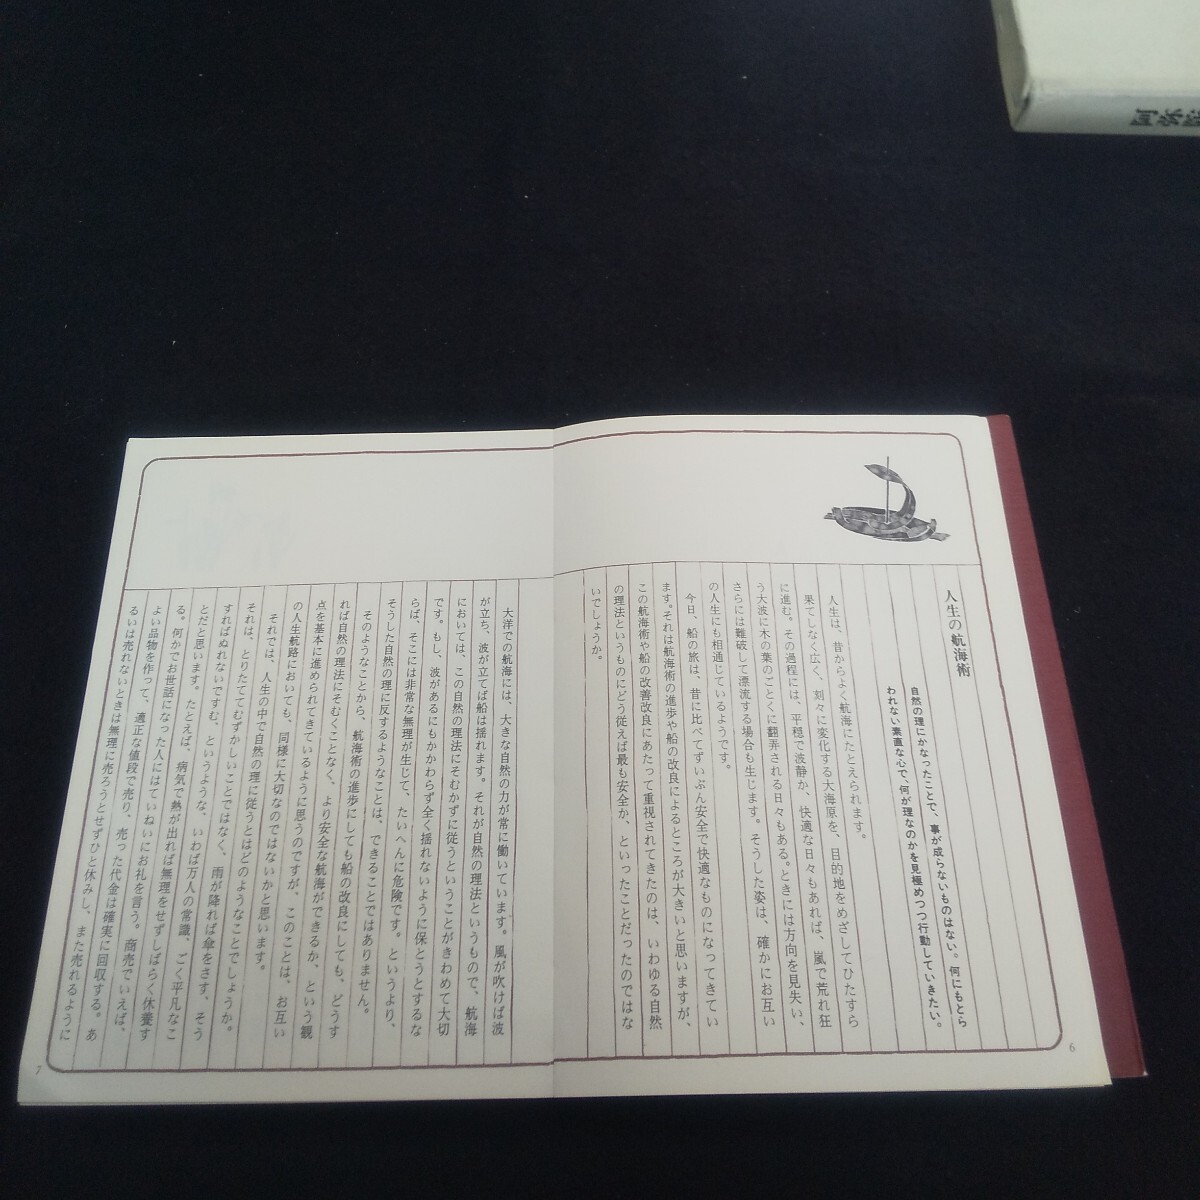 人生の航海術
自然の理にかなったことで、事が成らないものはない。何にもとら
われない素直な心で、何が理なのかを見極めつつ行動していきたい。
人生は、昔からよく航海にたとえられます。
果てしなく広く、刻々に変化する大海原を、目的地をめざしてひたすら
に進む。その過程には、平穏で波静か、快適な日々もあれば、嵐で荒れ狂
う大波に木の葉のごとくに翻弄される日々もある。ときには方向を見失い、
さらには難破して漂流する場合も生じます。そうした姿は、確かにお互い
の人生にも相通じているようです。
今日、船の旅は、昔に比べてずいぶん安全で快適なものになってきてい
ます。それは航海術の進歩や船の改良によるところが大きいと思いますが、
この航海術や船の改善改良にあたって重視されてきたのは、いわゆる自然
の理法というものにどう従えば最も安全か、といったことだったのではな
いでしょうか。
6
大洋での航海には、大きな自然の力が常に働いています。風が吹けば波
が立ち、波が立てば船は揺れます。それが自然の理法というもので、航海
においては、この自然の理法にそむかずに従うということがきわめて大切
です。もし、波があるにもかかわらず全く揺れないように保とうとするな
らば、そこには非常な無理が生じて、たいへんに危険です。というより、
そうした自然の理に反するようなことは、できることではありません。
そのようなことから、航海術の進歩にしても船の改良にしても、どうす
れば自然の理法にそむくことなく、より安全な航海ができるか、という観
点を基本に進められてきているように思うのですが、このことは、お互い
の人生航路においても、同様に大切なのではないかと思います。
それでは、人生の中で自然の理に従うとはどのようなことでしょうか。
それは、とりたててむずかしいことではなく、雨が降れば傘をさす、そう
すればぬれないですむ、というような、いわば万人の常識、ごく平凡なこ
とだと思います。たとえば、病気で熱が出れば無理をせずしばらく休養す
る。何かでお世話になった人にはていねいにお礼を言う。商売でいえば、
よい品物を作って、適正な値段で売り、売った代金は確実に回収する。あ
るいは売れないときは無理に売ろうとせずひと休みし、また売れるように
7